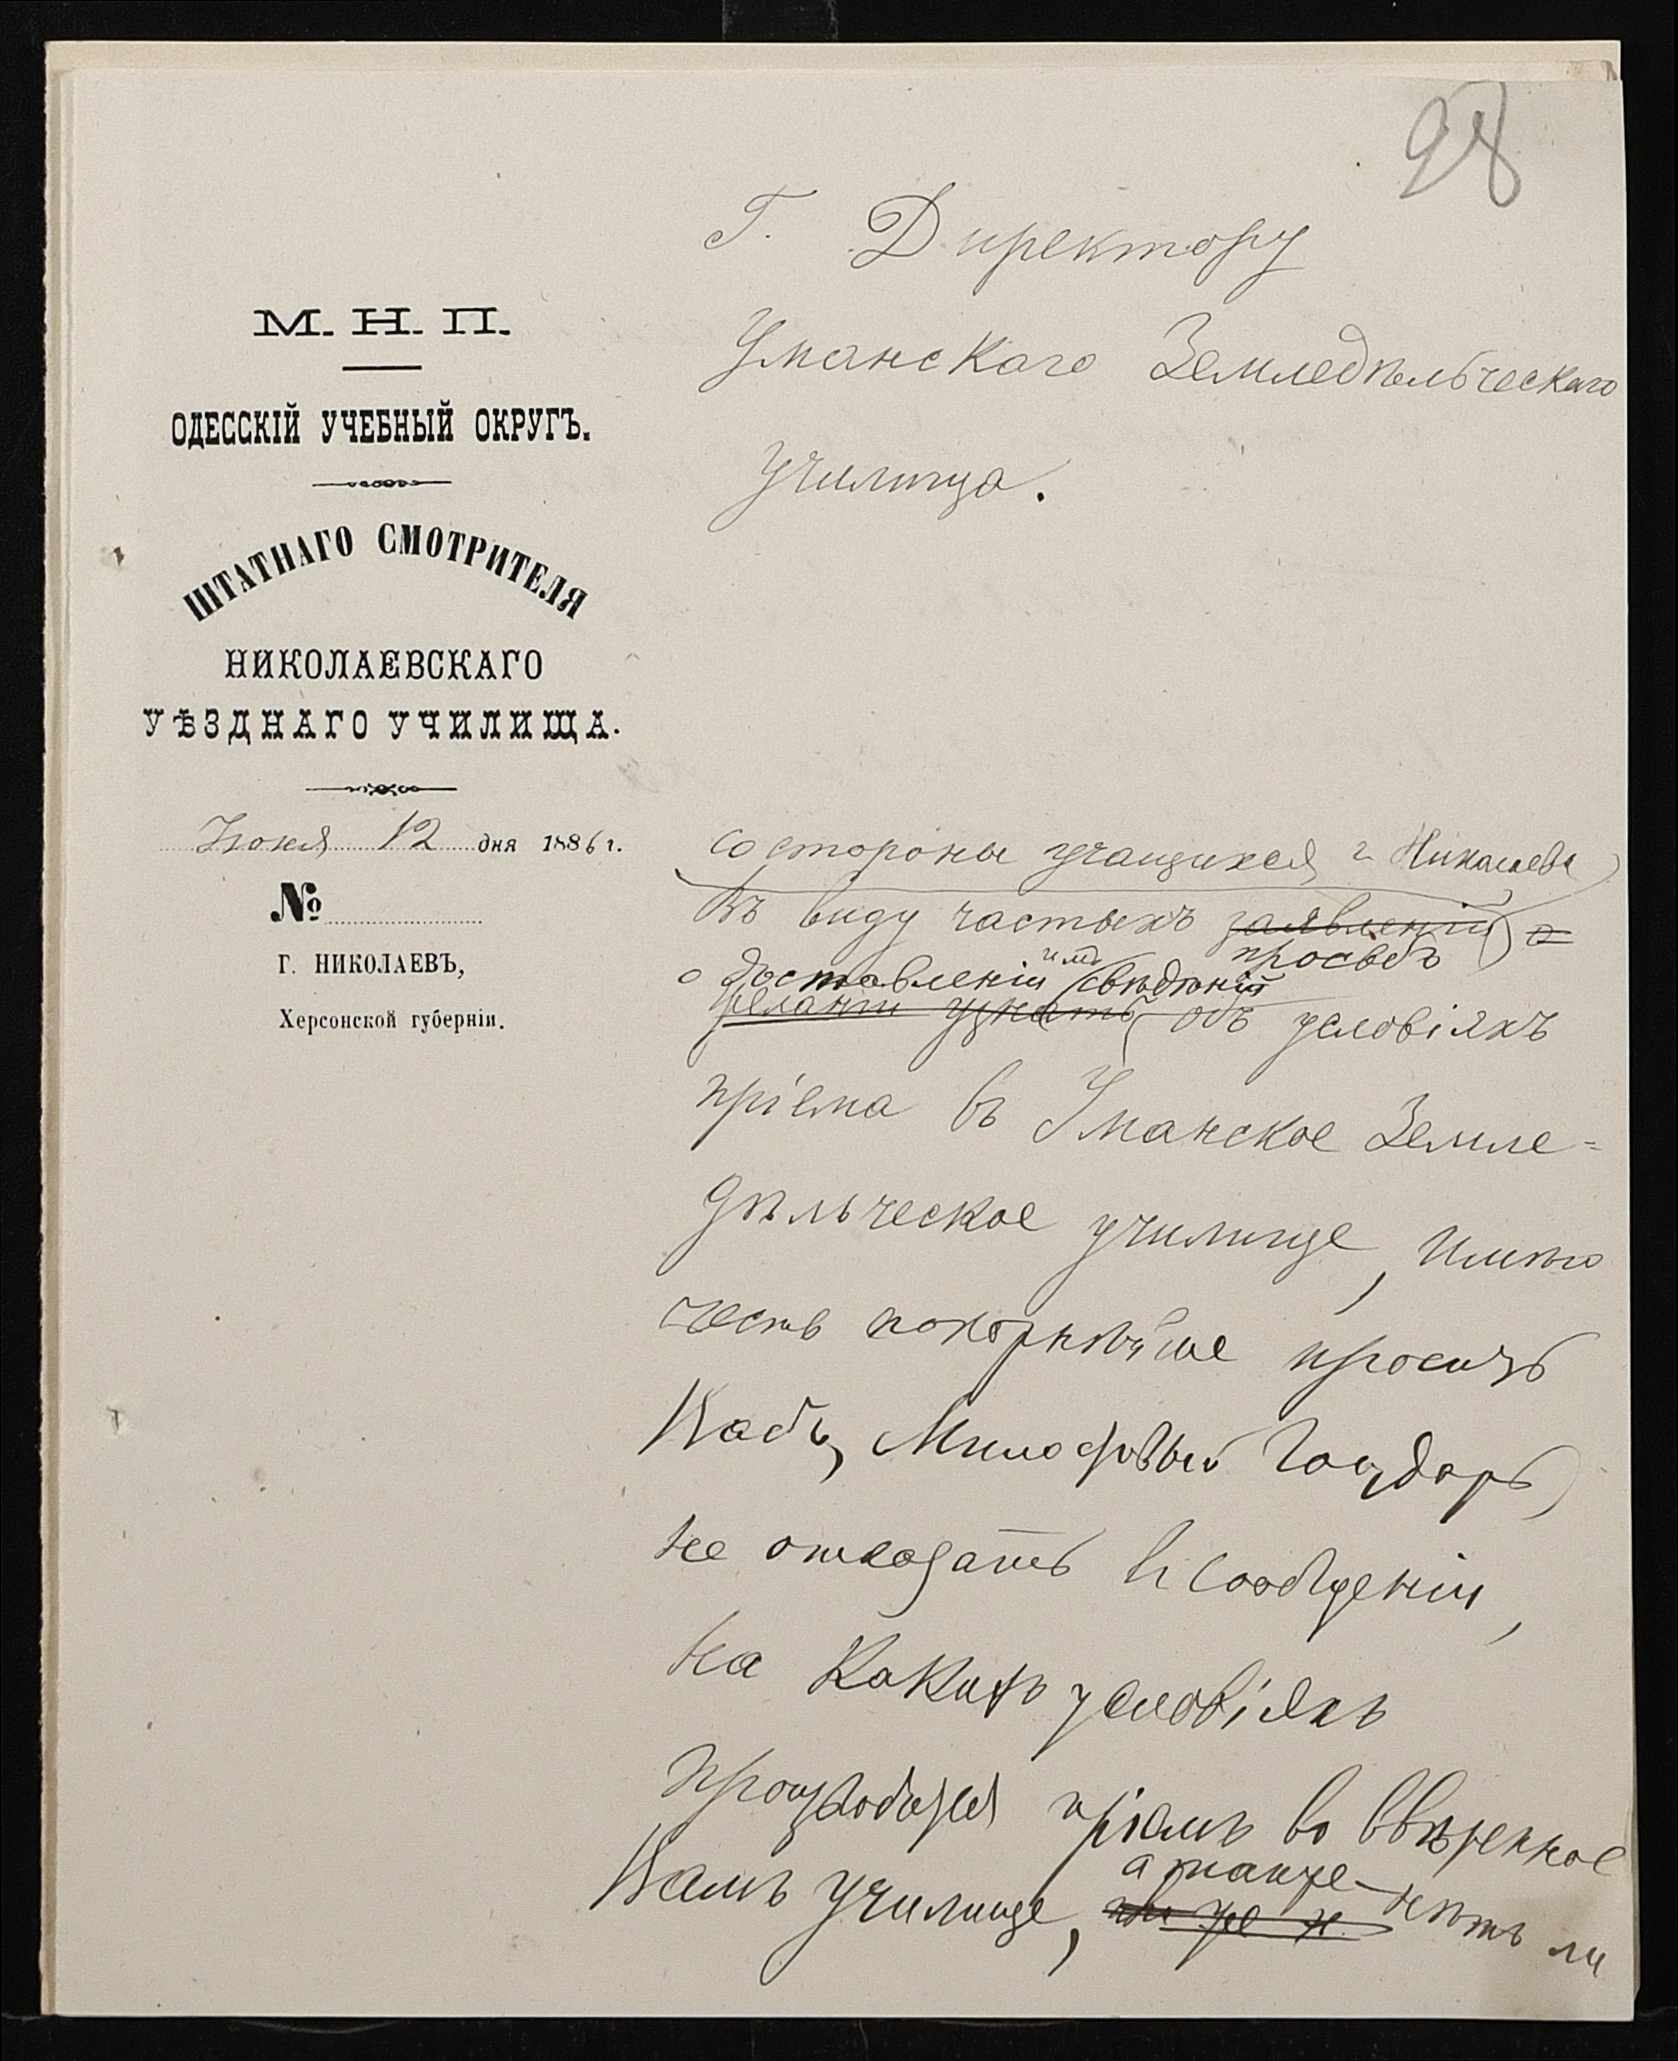 98
Г. Директору
Уманскаго Земледѣльческаго
училища.
М. Н. П.
ОДЕССКІЙ УЧЕБНЫЙ ОКРУГЪ.
ШТАТНАГО СМОТРИТЕЛЯ
НИКОЛАЕВСКАГО
УѢЗДНАГО УЧИЛИЩА.
Июня 12 дня 1886 г.
№
Г. НИКОЛАЕВЪ,
Херсонской губерніи.
со стороны учащихся г. Николаева
Въ виду частыхъ заявленій о
просьбъ
о доставленіи имъ свѣдѣній
желанiи узнать объ условіяхъ
пріема въ Уманское Земле=
дѣльческое училище, имѣю
честь покорнѣйше просить
Васъ, Милостивый Государь,
не отказать въ сообщеніи,
на какихъ условіяхъ
производится пріемъ во ввѣренное
Вамъ училище, а также нѣтъ ли